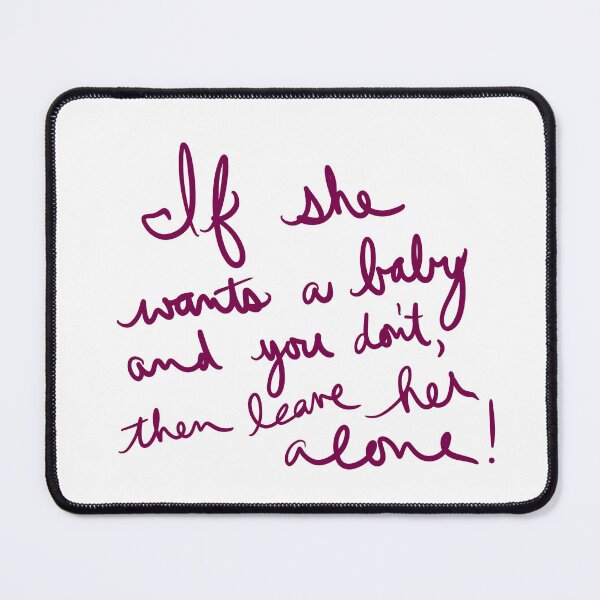 If she
wants a baby
and you don't,
then leave her
alone!